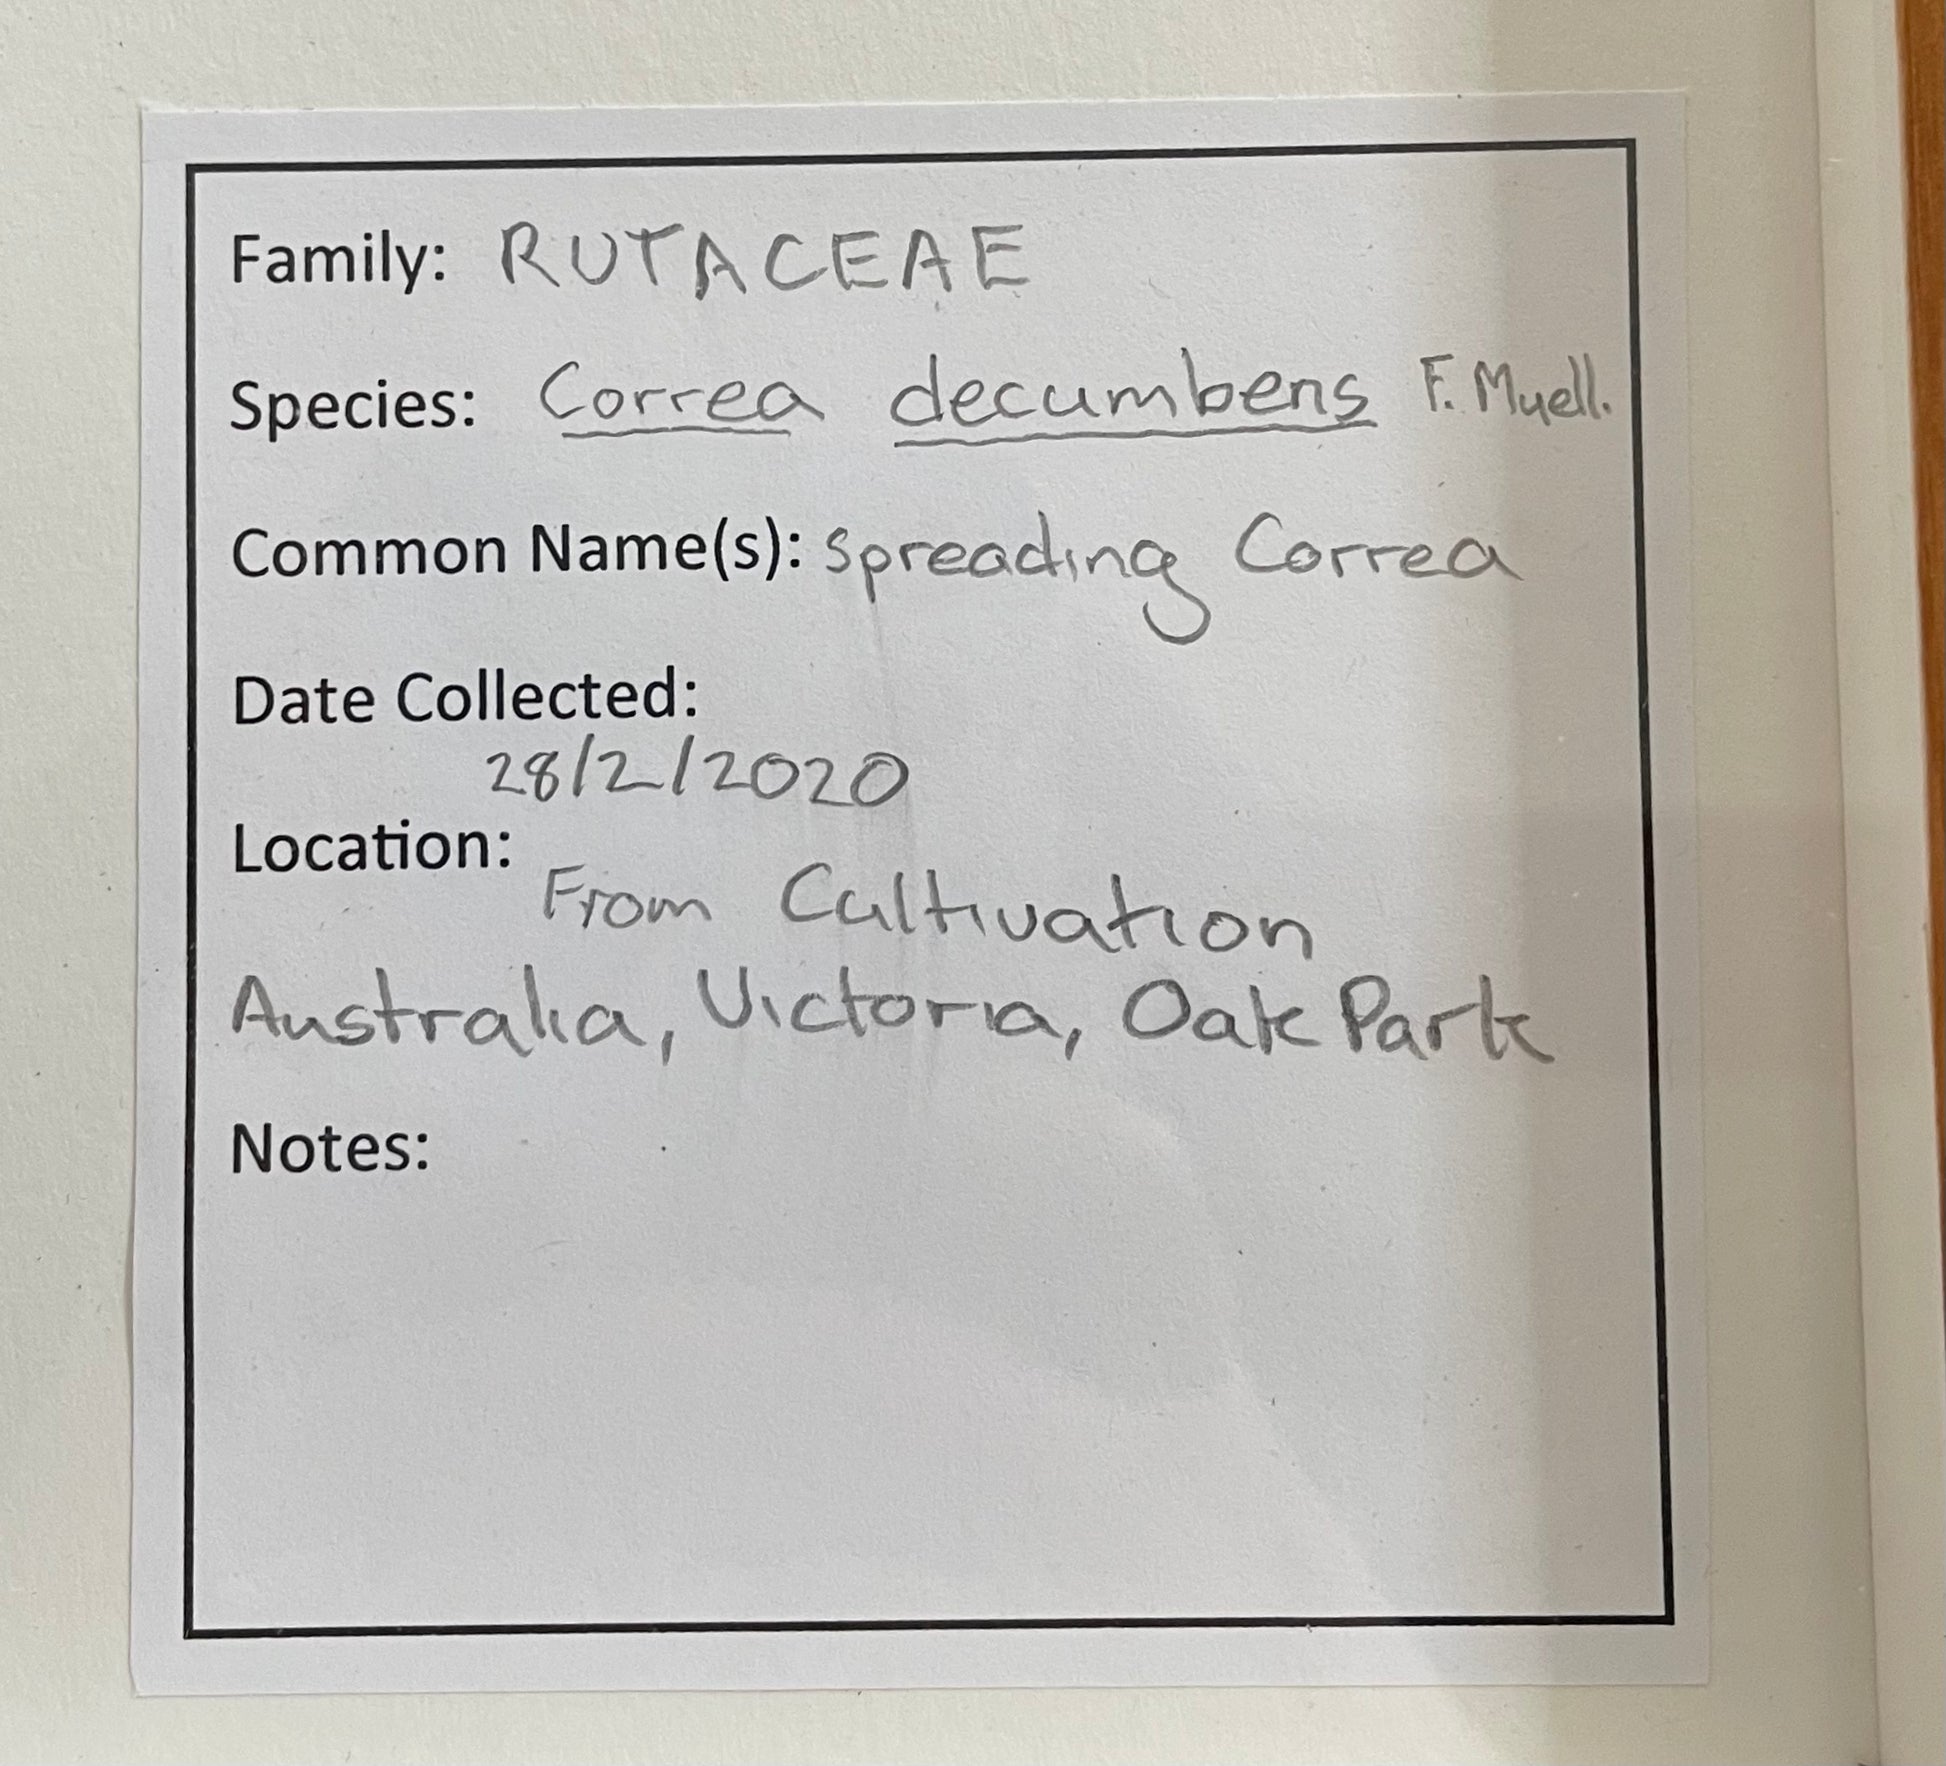 Family: RUTACEAE
Species: Correa decumbens F. Muell.
Common Name(s): Spreading Correa
Date Collected:
28/2/2020
Location:
From Cultivation
Australia, Victoria, Oak Park
Notes: